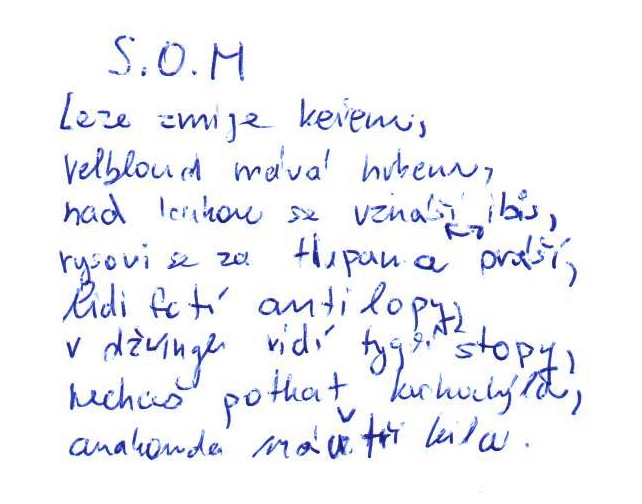 S.O.M
Leze zmije keřem,
velbloud mává hrbem,
nad loukou se vznáší ibis,
rysovi se za tlapama práší,
lidi fotí antilopy,
v džungli vidí tygří stopy,
nechoď potkat krokodýla,
anakonda má tři kila.